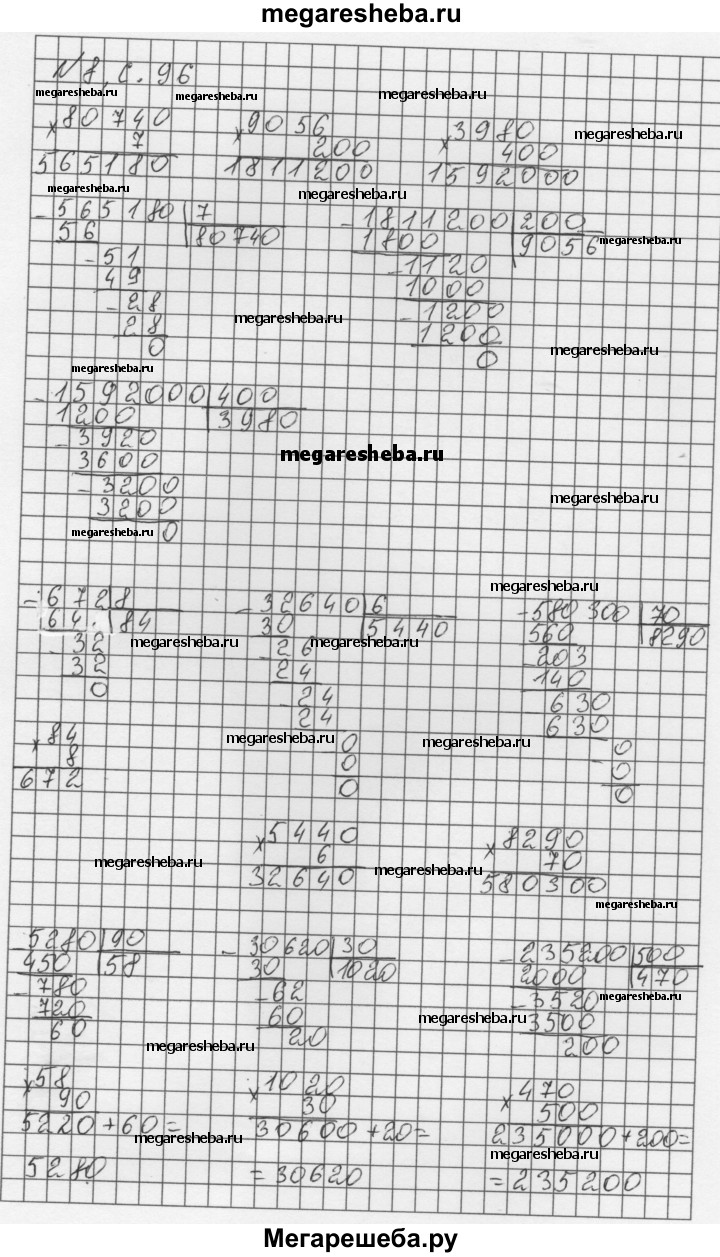 megaresheba.ru
№8, с. 96
megaresheba.ru megaresheba.ru megaresheba.ru
×80740 ×9056 ×3980
7 200 400
megaresheba.ru
565180 1811200 1592000
megaresheba.ru megaresheba.ru
-565180|7 -1811200|200
56 |80740 1800 |9056
megaresheba.ru
-51 -1120
49 1000
-28 -1200
megaresheba.ru
28 1200
0 0
megaresheba.ru
megaresheba.ru
-1592000|400
1200 |3980
-3920
megaresheba.ru
3600
-3200
megaresheba.ru
3200
megaresheba.ru 0
megaresheba.ru
-672|8 -32640|6 -580300|70
64 |84 30 |5440 560 |8290
megaresheba.ru megaresheba.ru megaresheba.ru
-32 -26 -203
32 24 140
0 -24 630
24 630
×84 megaresheba.ru 0 megaresheba.ru 0
8 0 0
672 0 0
×5440 ×8290
megaresheba.ru 6 megaresheba.ru 70
32640 580300
megaresheba.ru
-5280|90 -30620|30 -235200|500
450 |58 30 |1020 2000 |470
-780 -62 -3520
megaresheba.ru
720 60 3500
megaresheba.ru
60 20 200
megaresheba.ru
×58 ×1020 ×470
90 30 500
5220+60= 30600+20= 235000+200=
megaresheba.ru megaresheba.ru
5280 =30620 =235200
Мегарешеба.ру